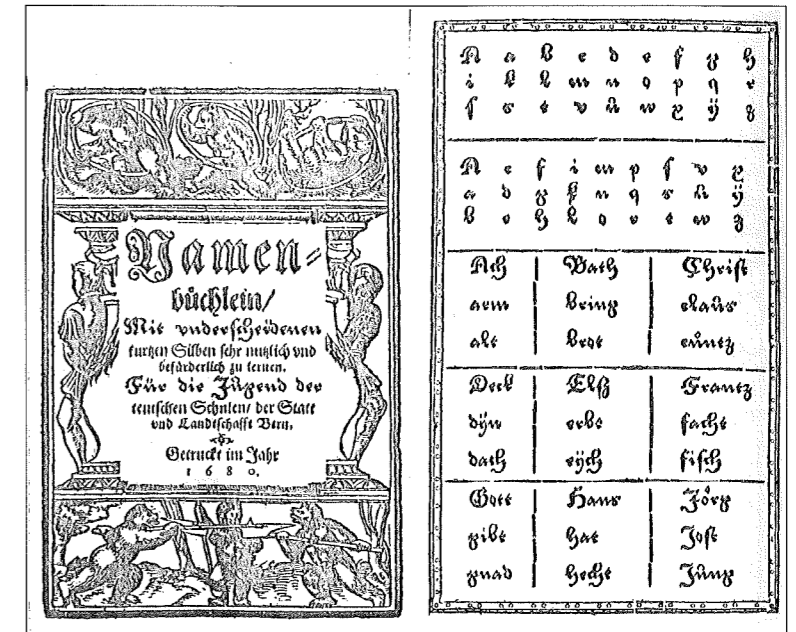 Namen-
büchlein/
Mit vnderscheidenen
kurtzen Silben sehr nutzlich vnd
befürderlich zu lernen.
Für die Jůgend der
teutschen Schulen/ der Statt
vnd Landtschafft Bern.
Getruckt im Jahr
1 6 8 0.
A a b c d e f g h
i k l m n o p q r
ſ s t v ů w x ÿ z
A e f i m p ſ v x
a d g k n q s ů ÿ
b c h l o r t w z
Ach Bath Christ
arm bring claůs
alt brot cůntz
Deck Elß Frantz
dÿn erbt facht
dach eÿch fisch
Gott Hans Jörg
gibt hat Jost
gnad hecht Jůng